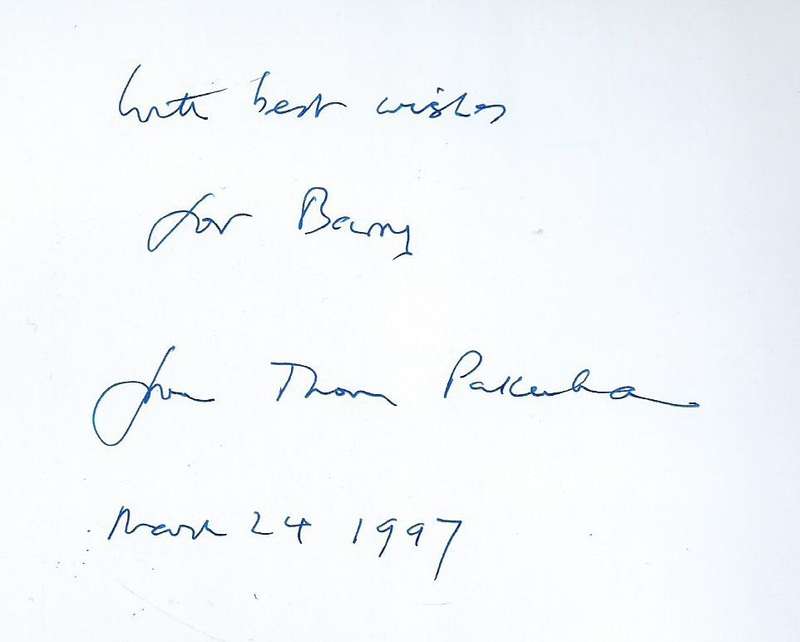 With best wishes
for Barry
from Thomas Pakenham
March 24 1997